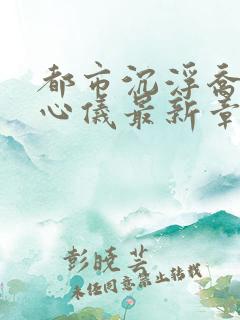 都市沉浮乔
心仪最新章
彭晓芸
未经同意禁止转载